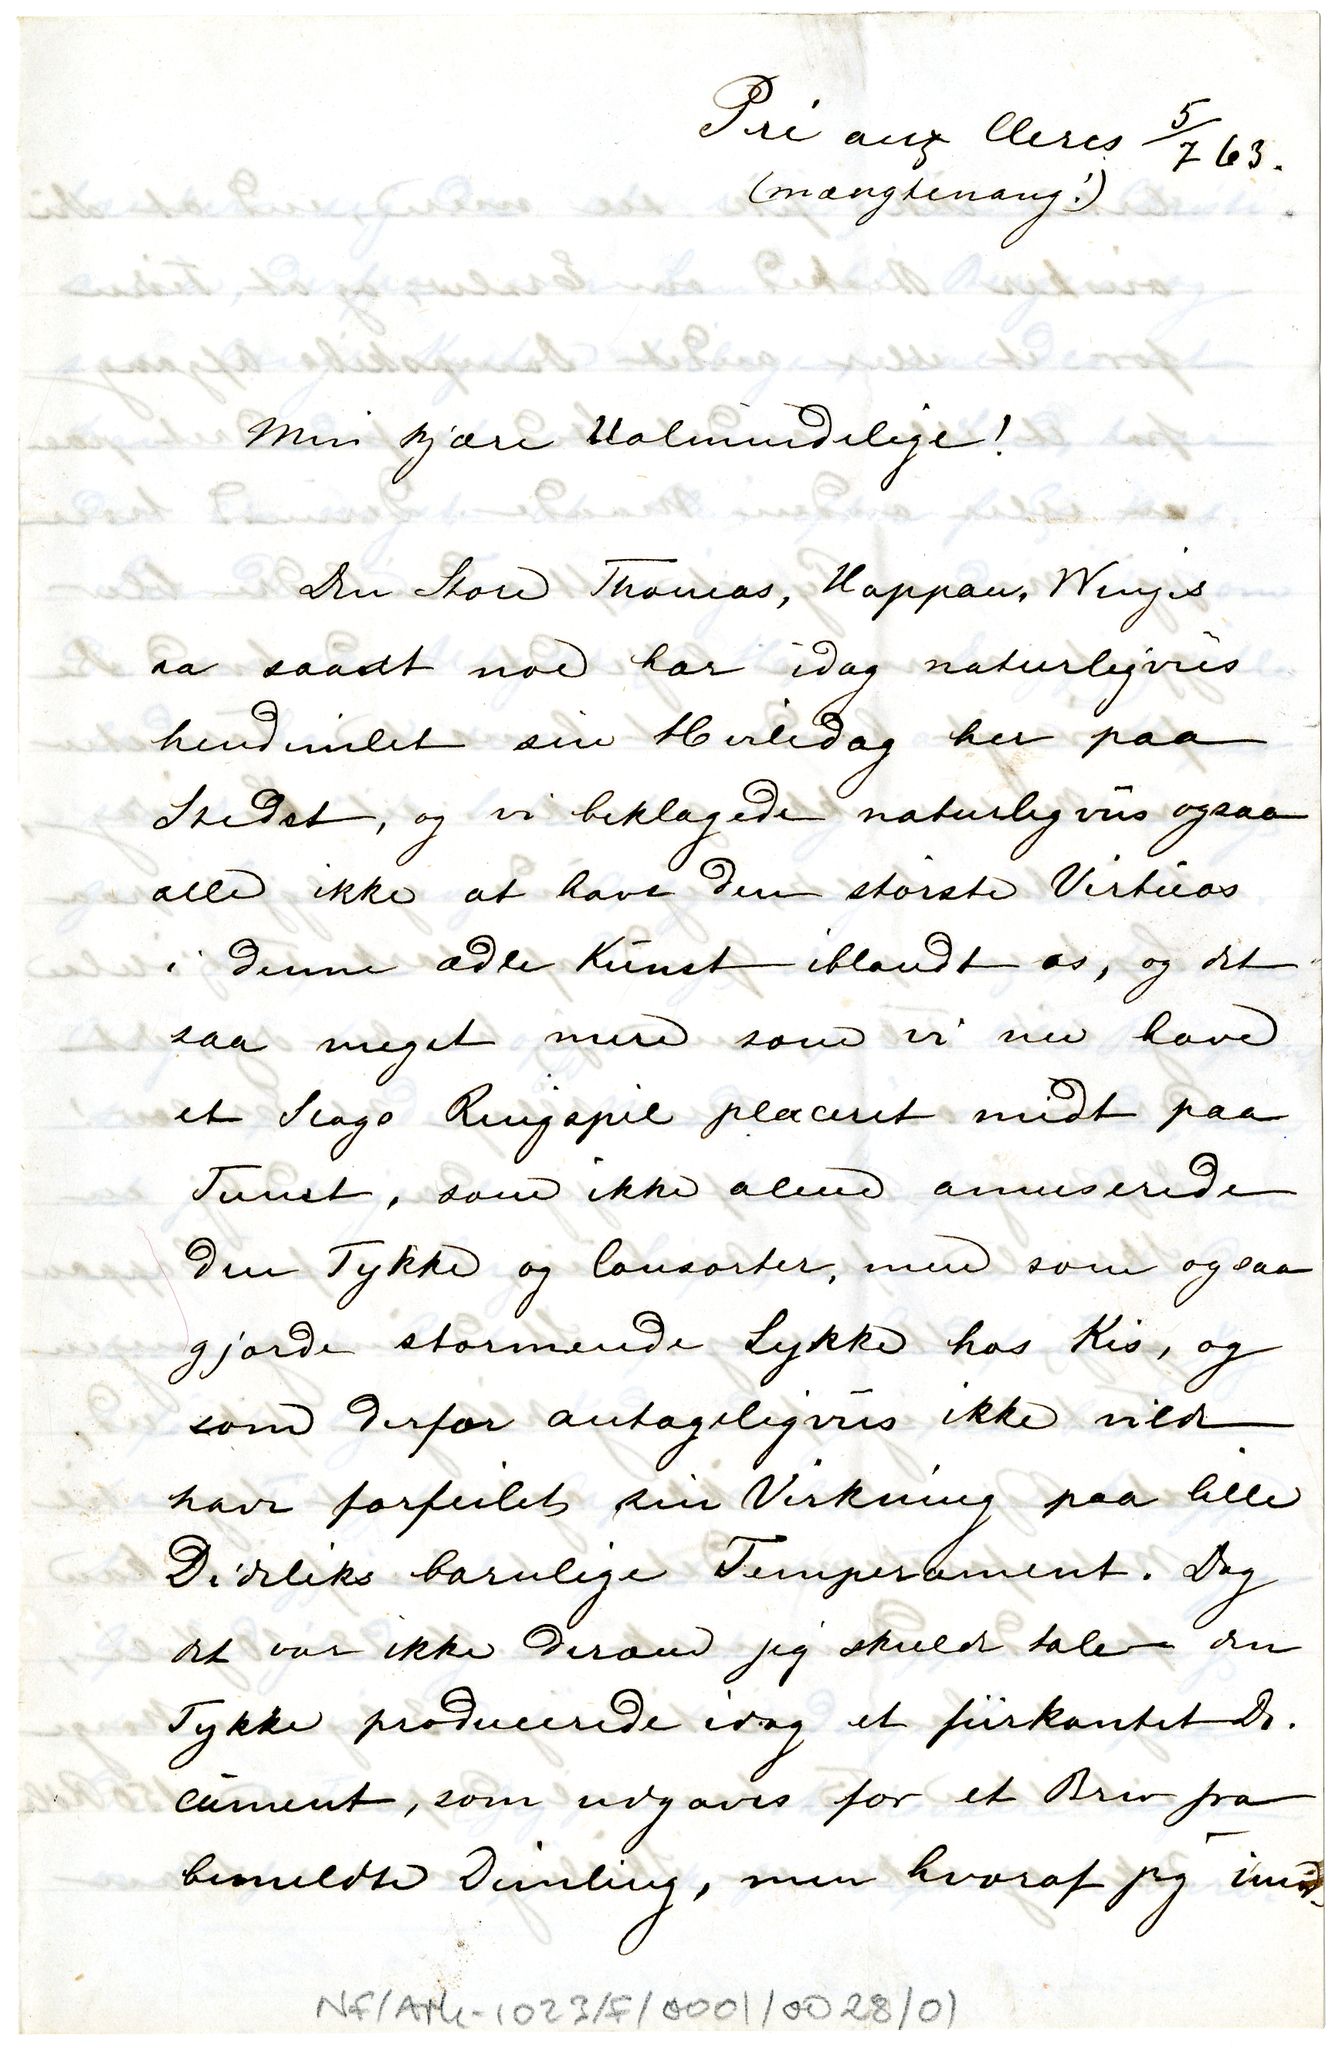 Pré aux Clercs 5/7 63.
(mængtenang!)
Min kjære Ualmindelige!
Den Store Thomas, Hoppau, Winges
aa saadt noe har idag naturligviis
hendimlet sin Hviledag her paa
Stedet, og vi beklagede naturligviis ogsaa
alle ikke at have den störste Virtúos
i denne ædle Kúnst iblandt os, og det
saa meget mere som vi nu have
et Slags Ringspil placeret midt paa
Tunet, som ikke alene amuserede
den Tykke og Consorter, men som ogsaa
gjorde stormende Lykke hos Kis, og
som derfor antageligviis ikke vilde
have forfeilet sin Virkning paa lille
Didriks barnlige Temperament. Dog
det var ikke derom jeg skulde tale den
Tykke producerede idag et fiirkantet Do-
cúment, som udgaves for et Brev fra
bemeldte Dimling, men hvoraf jeg imid-
NF/Ark-1023/F/0001/0028/01